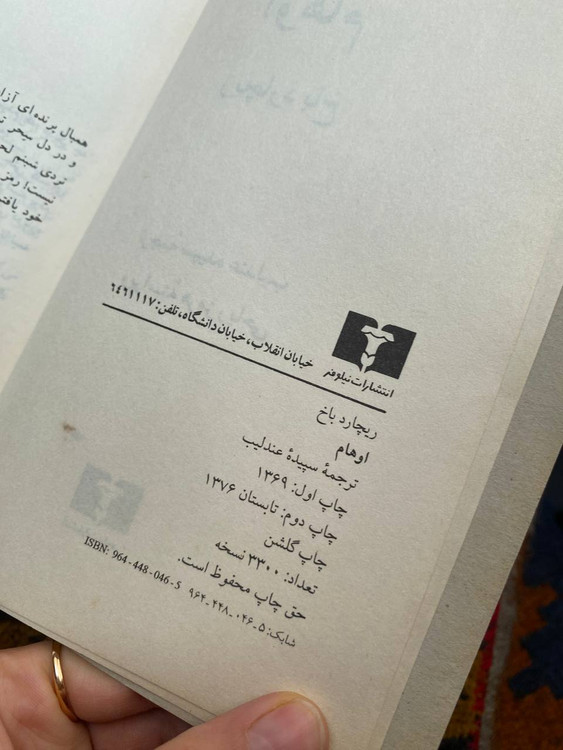 همبال پرنده‌ای
و در دل سحر
تردی شبنم
نیست! رمز
خود
انتشارات نیلوفر
خیابان انقلاب، خیابان دانشگاه، تلفن: ۶۴۶۱۱۱۷
ریچارد باخ
اوهام
ترجمهٔ سپیدهٔ عندلیب
چاپ اول: ۱۳۶۹
چاپ دوم: تابستان ۱۳۷۶
چاپ گلشن
تعداد: ۳۳۰۰ نسخه
حق چاپ محفوظ است.
شابک: ۵_۰۴۶_۴۴۸_۹۶۴
ISBN: 964-448-046-5